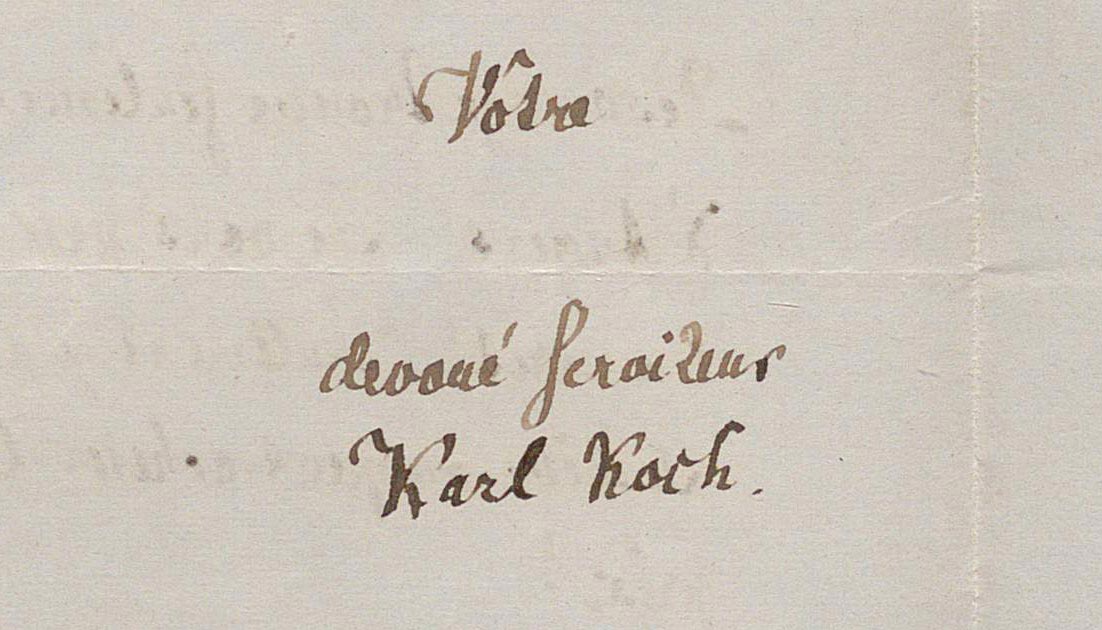 Vôtre
devoué serviteur
Karl Koch.